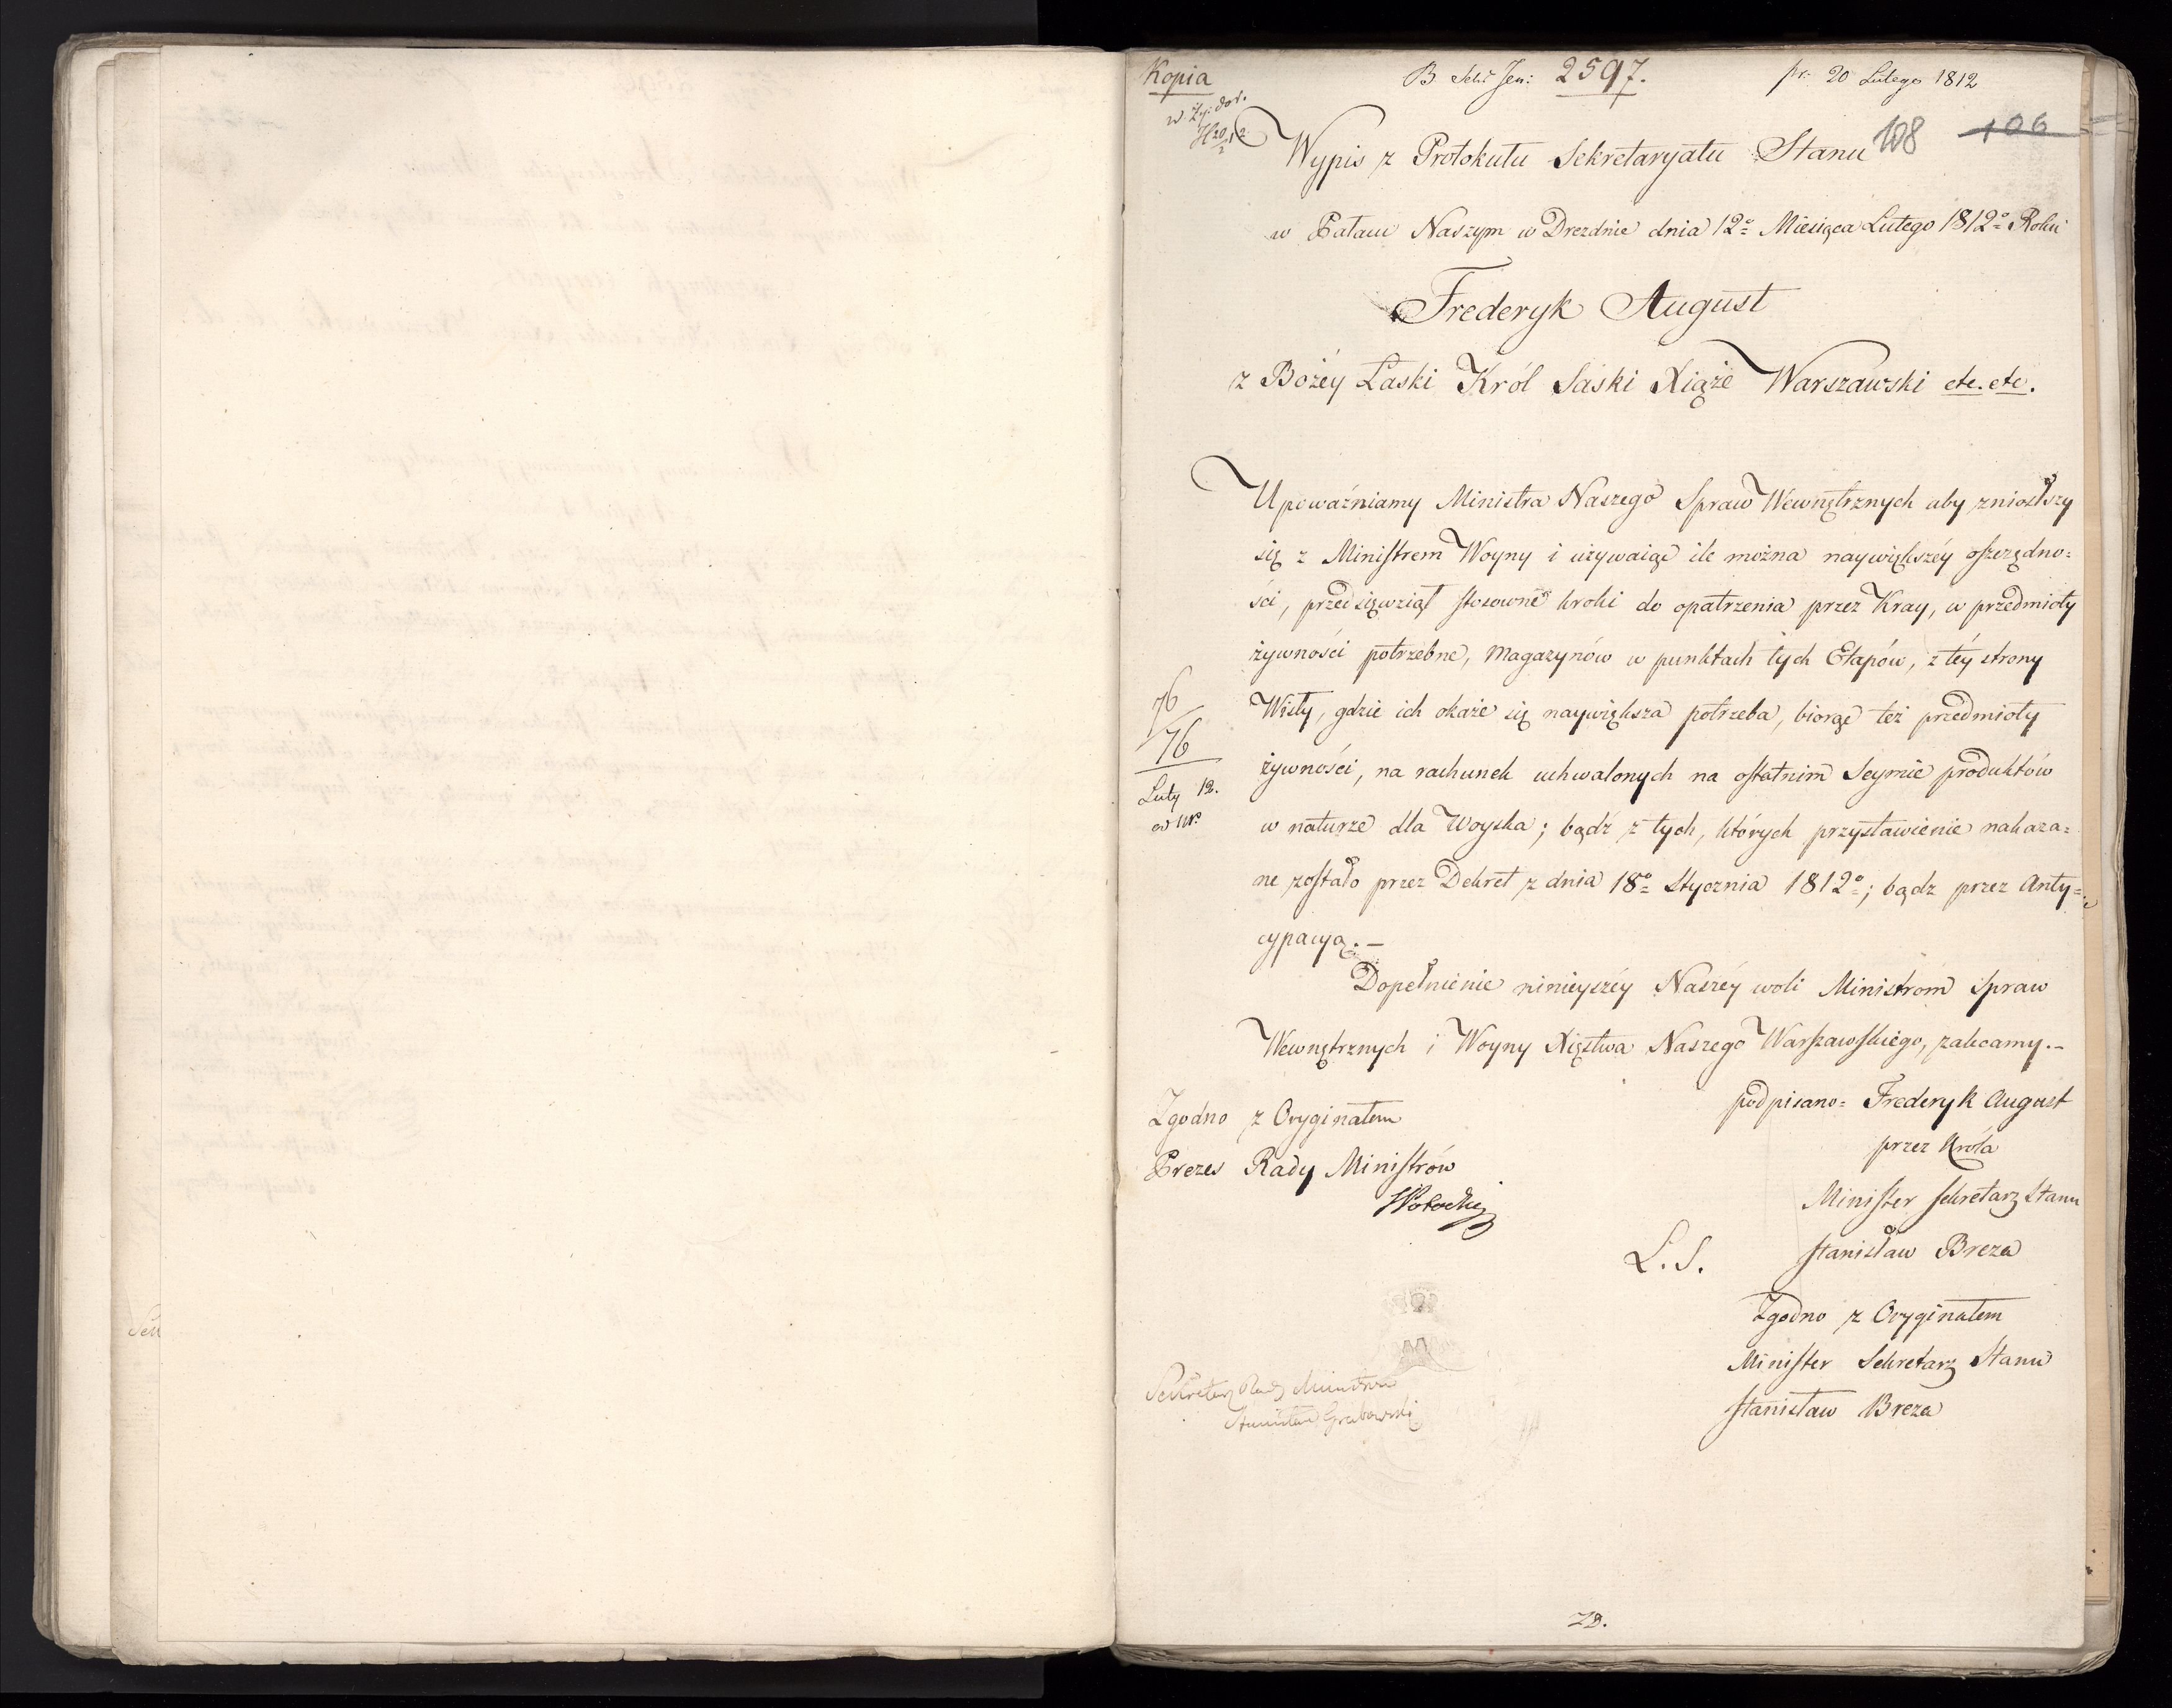 Kopia
B. Sekr Jen: 2597.
pr. 20 Lutego 1812
108 106
Wypis z Protokułu Sekretaryatu Stanu
w Pałacu Naszym w Dreznie dnia 12º Miesiąca Lutego 1812º Roku
Frederyk August
z Bożéy Łaski Król Saski Xiąże Warszawski etc. etc.
Upoważniamy Ministra Naszego Spraw Wewnętrznych aby zniosłszy
się z Ministrem Woyny i używaiąc ile można naywiększéy oszczędno=
ści, przedsięwziął stosowne kroki do opatrzenia przez Kray, w przedmioty
żywności potrzebne, Magazynów w punktach tych Etapów, z téy strony
Wisły, gdzie ich okaże się naywiększa potrzeba, biorąc też przedmioty
żywności, na rachunek uchwalonych na ostatnim Seymie produktów
w naturze dla Woyska; bądź z tych, których przystawienie nakaza=
ne zostało przez Dekret z dnia 18º Stycznia 1812º; bądz przez Anty=
cypacyą. —
76
76
Luty 12.
Dopełnienie ninieyszéy Naszéy woli Ministrom Spraw
Wewnętrznych i Woyny Xięstwa Naszego Warszawskiego, zalecamy. —
podpisano= Frederyk August
przez Króla
Minister Sekretarz Stanu
L. S. Stanisław Breza
Zgodno z Oryginałem
Minister Sekretarz Stanu
Stanisław Breza
Zgodno z Oryginałem
Prezes Rady Ministrów
SPotocki
Sekretarz Rady Ministrów
Stanisław Grabowski
ZB.